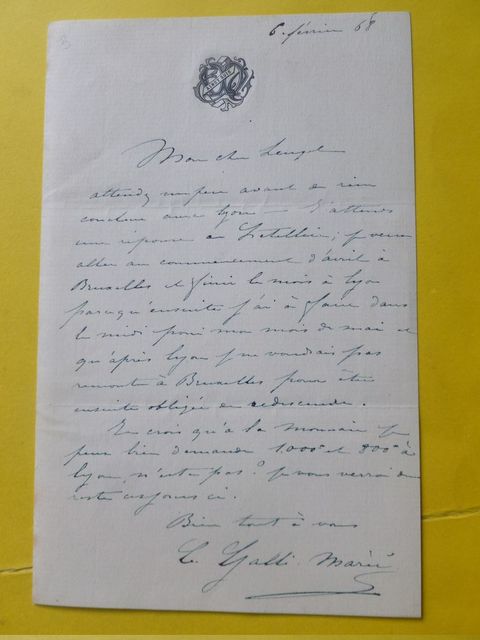 6 février 68
Mon cher
attendez un peu avant de rien
conclure avec Lyon — J'attends
une réponse de Letellier; je veux
aller au commencement d'avril à
Bruxelles et finir le mois à Lyon
parcequ'ensuite j'ai à faire dans
le midi pour mon mois de mai et
qu'après Lyon je ne voudrais pas
remonter à Bruxelles pour être
ensuite obligée de redescendre.
Je crois qu'à la monnaie je
peux bien demander 1000 et 800 à
Lyon, n'est ce pas? je vous verrai du
reste ces jours ci.
Bien tout à vous
C. Galli-Marié